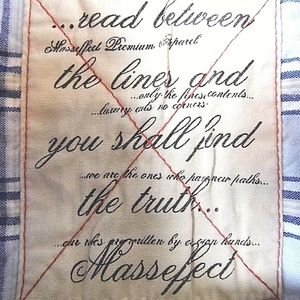 ...read between
Masseffect Premium Apparel
the lines and
...only the finest contents...
...luxury cuts no corners.
you shall find
...we are the ones who pave new paths...
the truth...
...our rules are written by our own hands...
Masseffect